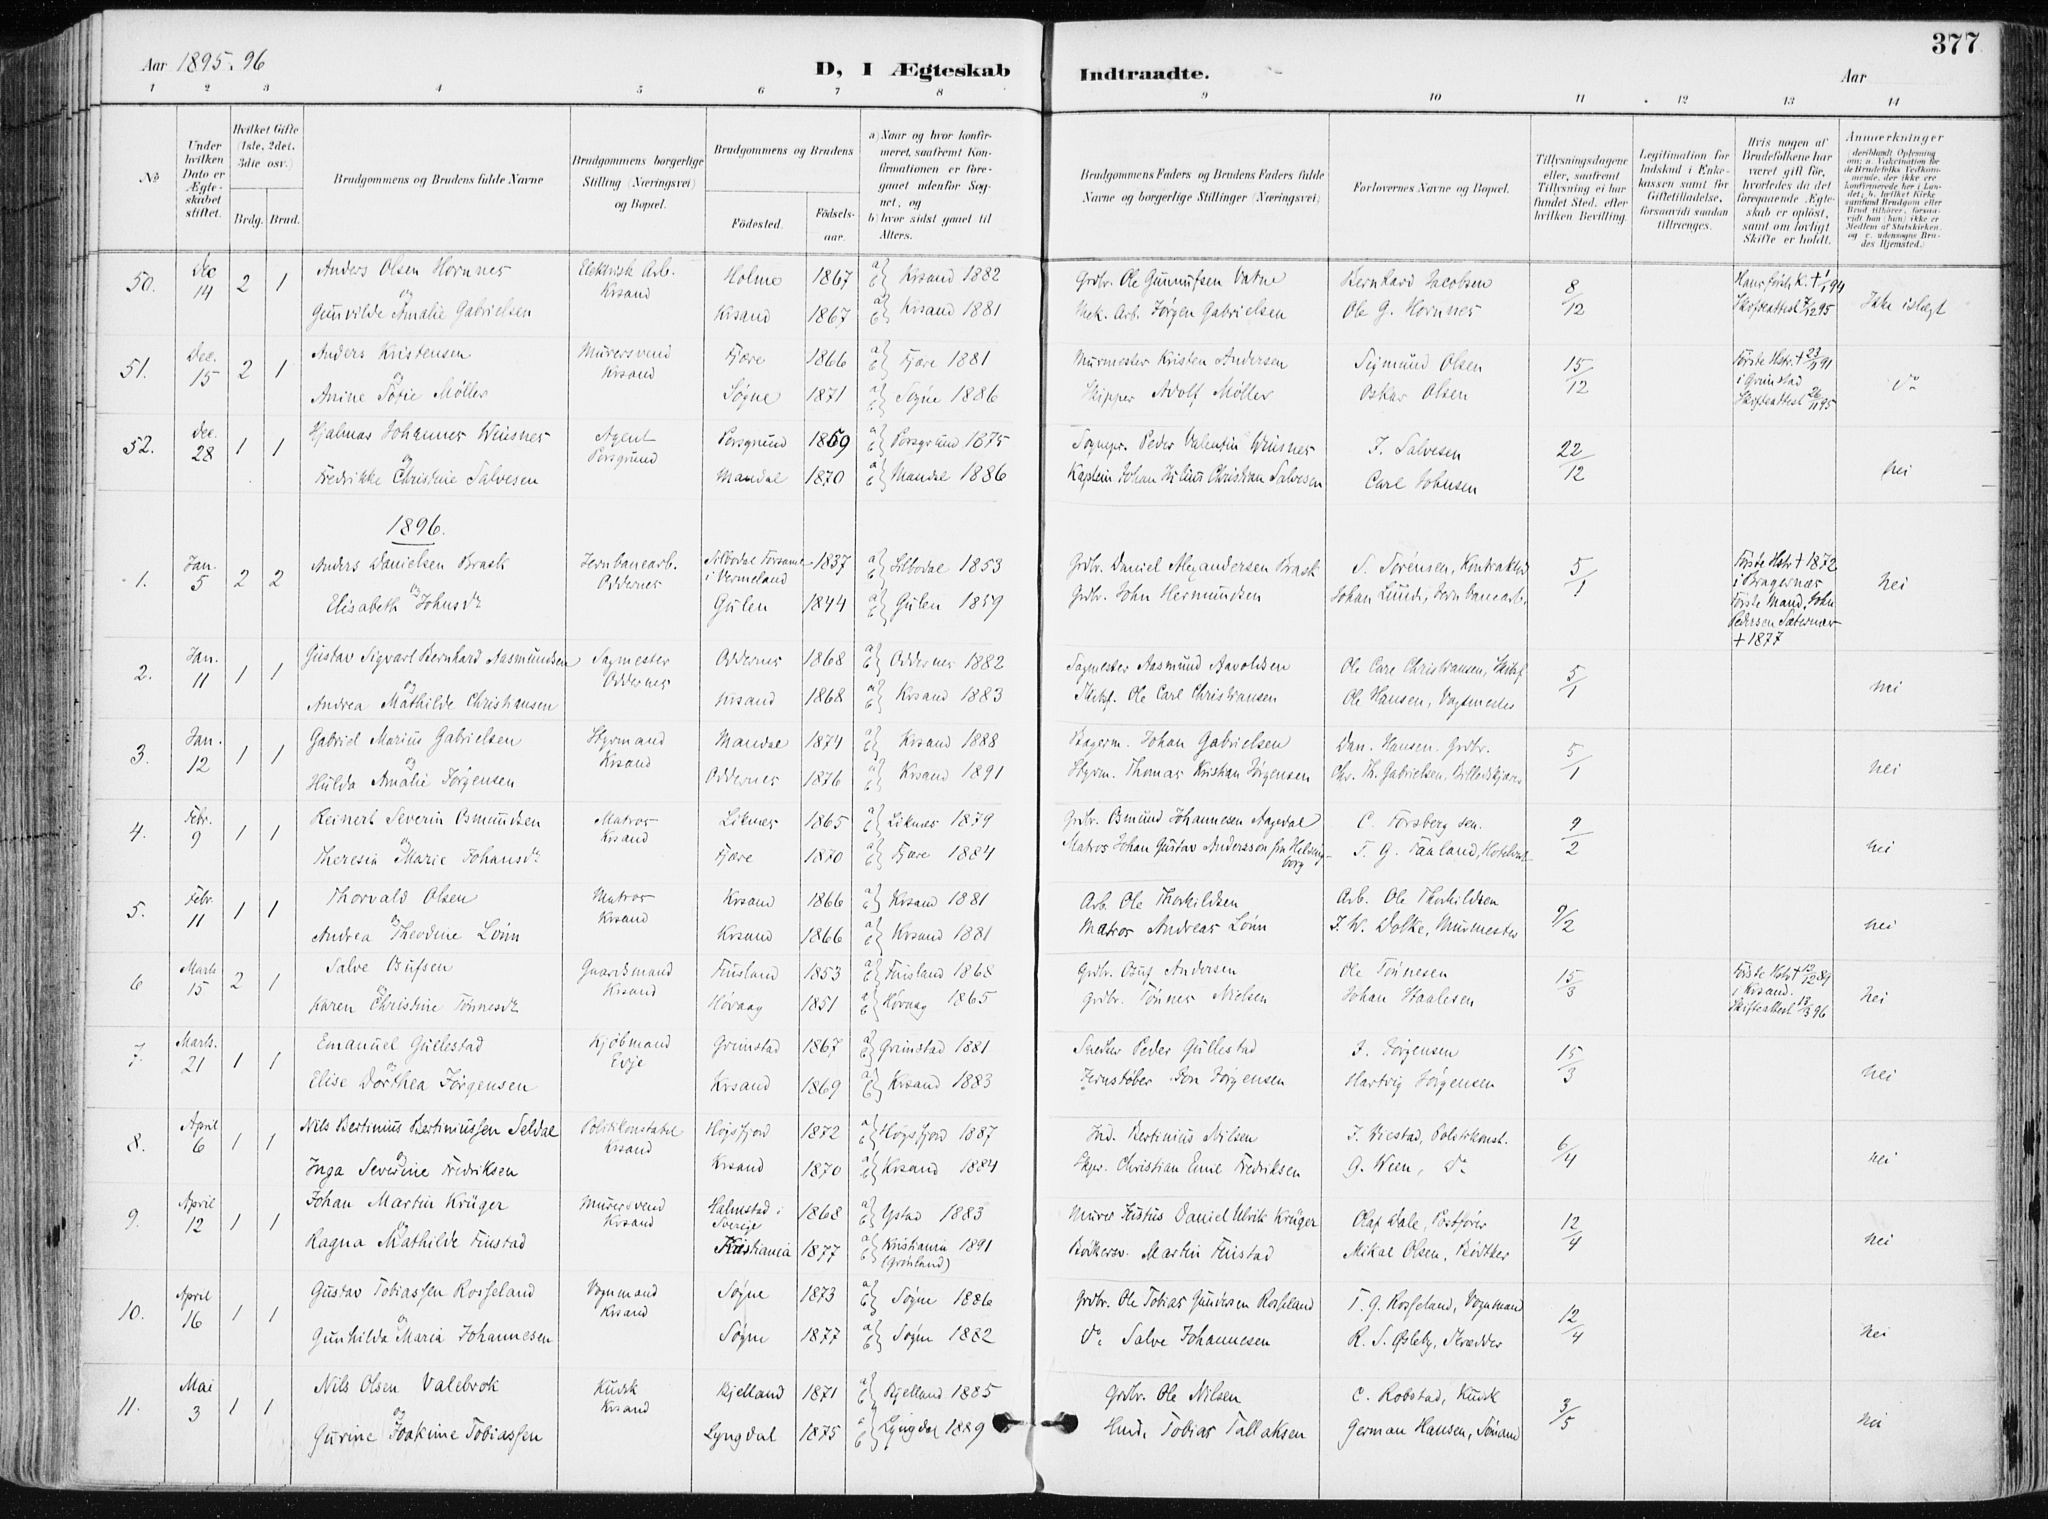 377
Aar 1895-96
D, I Ægteskab Indtraadte.
Aar
1 2 3 4 5 6 7 8 9 10 11 12 13 14
No
Under hvilken Dato er Ægteskabet stiftet.
Hvilket Gifte (1ste, 2det, 3die osv.)
Brdg. Brud.
Brudgommens og Brudens fulde Navne
Brudgommens borgerlige Stilling (Næringsvei) og Bopæl.
Brudgommens og Brudens
Födested.
Födselsaar.
a) Naar og hvor konfirmeret, saafremt Konfirmationen er foregaaet udenfor Sognet, og
b) hvor sidst gaaet til Alters.
Brudgommens Faders og Brudens Faders fulde Navne og borgerlige Stillinger (Næringsvei)
Forlovernes Navne og Bopæl.
Tillysningsdagene eller, saafremt Tillysning ei har fundet Sted, efter hvilken Bevilling.
Legitimation for Indskud i Enkekassen samt for Giftetilladelse, forsaavidt saadan tiltrænges.
Hvis nogen af Brudefolkene har været gift för, hvorledes da det foregaaende Ægteskab er oplöst, samt om lovligt Skifte er holdt.
Anmærkninger
50. Dec 14 2 1 Anders Olsen Hornnes Elektrisk Arb. Krsand Holme 1867 a) b) Krsand 1882 Grdbr. Ole Gunnufsen Vatne Bernhard Jacobsen 8/12 Skifteattest 7/12 95 Ikke i slægt
og Gunvilde Amalie Gabrielsen Krsand 1867 a) b) Krsand 1881 Mek. Arb. Jørgen Gabrielsen Ole G. Hornnes
51. Dec. 15 2 1 Anders Kristensen Murersvend Krsand Fjære 1866 a) b) Fjære 1881 Murmester Kristen Andersen Sigmund Olsen 15/12 Første Hstr † 23/11 91 i Grimstad Skifteattest 26/11 95 do
og Anine Tofie Møller Søgne 1871 a) b) Søgne 1886 Skipper Adolf Møller Oskar Olsen
52. Dec. 28 1 1 Hjalmar Johannes Wiisnes Agent Porsgrund Porsgrund 1859 a) b) Porsgrund 1875 Sognepr. Peder Valentin Wiisnes F. Salvesen 22/12 nei
og Fredrikke Christine Salvesen Mandal 1870 a) b) Mandal 1886 Kaptein Johan Julius Christian Salvesen Carl Johnsen
1896.
1. Jan. 5 2 2 Anders Danielsen Brask Jernbanearb. Oddernes Silbodal Forsaml. i Vermeland 1837 a) b) Silbodal 1853 Grdbr. Daniel Alexandersen Brask S. Sørensen, Kontraktør 5/1 Første Hstr † 1872 i Bragernæs Første Mand, John Pedersen Sæternær † 1877 nei
og Elisabeth Johnsdr Gulen 1844 a) b) Gulen 1859 Grdbr. John Hermundsen Johan Lund, Jernbanearb.
2. Jan. 11 1 1 Gustav Sigvart Bernhard Aasmundsen Sagmester Oddernes Oddernes 1868 a) b) Oddernes 1882 Sagmester Aasmund Aavoldsen Ole Carl Christiansen, Skibsf. 5/1 nei
og Andrea Mathilde Christiansen Krsand 1868 a) b) Krsand 1883 Skibsf. Ole Carl Christiansen Ole Hansen, Vagtmester
3. Jan. 12 1 1 Gabriel Marius Gabrielsen Styrmand Krsand Mandal 1874 a) b) Krsand 1888 Bagerm. Johan Gabrielsen Dan. Hansen. Grdbr. 5/1 nei
og Hulda Amalie Jørgensen Oddernes 1876 a) b) Krsand 1891 Styrm. Thomas Kristian Jørgensen Chr. Th. Gabrielsen, Billedskjærer
4. Febr. 9 1 1 Reinert Severin Osmundsen Matros Krsand Liknes 1865 a) b) Liknes 1879 Grdbr. Osmund Johannesen Aagedal C. Forsberg sen. 9/2 nei
og Theresia Marie Johansdr Fjære 1870 a) b) Fjære 1884 Matros Johan Gustav Andersson fra Helsingborg T. G. Faaland, Hotelvært
5. Febr. 11 1 1 Thorvald Olsen Matros Krsand Krsand 1866 a) b) Krsand 1881 Arb. Ole Thorkildsen Arb. Ole Thorkildsen 9/2 nei
og Andrea Theodine Lönn Krsand 1866 a) b) Krsand 1881 Matros Andreas Lönn J. W. Dolke, Murmester
6 Marts 15 2 1 Salve Osufsen Gaardmand Krsand Finsland 1853 a) b) Finsland 1868 Grdbr. Osuf Andersen Ole Tønnesen 15/3 Første Hstr † 12/12 89 i Krsand. Skifteattest 13/3 96 nei
og Karen Christine Tønnesdr Høvaag 1851 a) b) Høvaag 1865 Grdbr. Tønnes Nielsen Johan Staalesen
7. Marts. 21 1 1 Emanuel Gullestad Kjøbmand Evje Grimstad 1867 a) b) Grimstad 1881 Snedker Peder Gullestad J. Jørgensen 15/3 nei
og Elise Dorthea Jørgensen Krsand 1869 a) b) Krsand 1883 Jernstøber Jon Jørgensen Hartvig Jørgensen
8. April 6 1 1 Nils Bertinius Bertiniussen Seldal Politikonstabel Krsand Høgsfjord 1872 a) b) Høgsfjord 1887 Ind. Bertinius Nilsen J. Viestad, Politikonst. 6/4 nei
og Inga Severine Fredriksen Krsand 1870 a) b) Krsand 1884 Skpr. Christian Emil Fredriksen G. Ween, do
9. April 12 1 1 Johan Martin Krüger Murersvend Krsand Halmstad i Sverige 1868 a) b) Ystad 1883 Murer Justus Daniel Ulrik Krüger Olaf Dale, Postfører 12/4 nei
og Ragna Mathilde Finstad Kristiania 1877 a) b) Kristiania 1891 (Grønland) Bødkersv. Martin Finstad Mikal Olsen, Bødtker
10. April 16 1 1 Gustav Tobiassen Rosseland Vognmand Krsand Søgne 1873 a) b) Søgne 1886 Grdbr. Ole Tobias Gundersen Rosseland T. G. Rosseland, Vognmand 12/4 nei
og Gunhilda Maria Johannesen Søgne 1877 a) b) Søgne 1882 do Salve Johannesen R. S. Øsleby, Skrædder
11. Mai 3 1 1 Nils Olsen Valebrok Kudsk Krsand Bjelland 1871 a) b) Bjelland 1885 Grdbr. Ole Nilsen C. Robstad, Kudsk 3/5 nei
og Gurine Joakime Tobiassen Lyngdal 1875 a) b) Lyngdal 1889 Hmd. Tobias Tallaksen German Hansen, Sømand